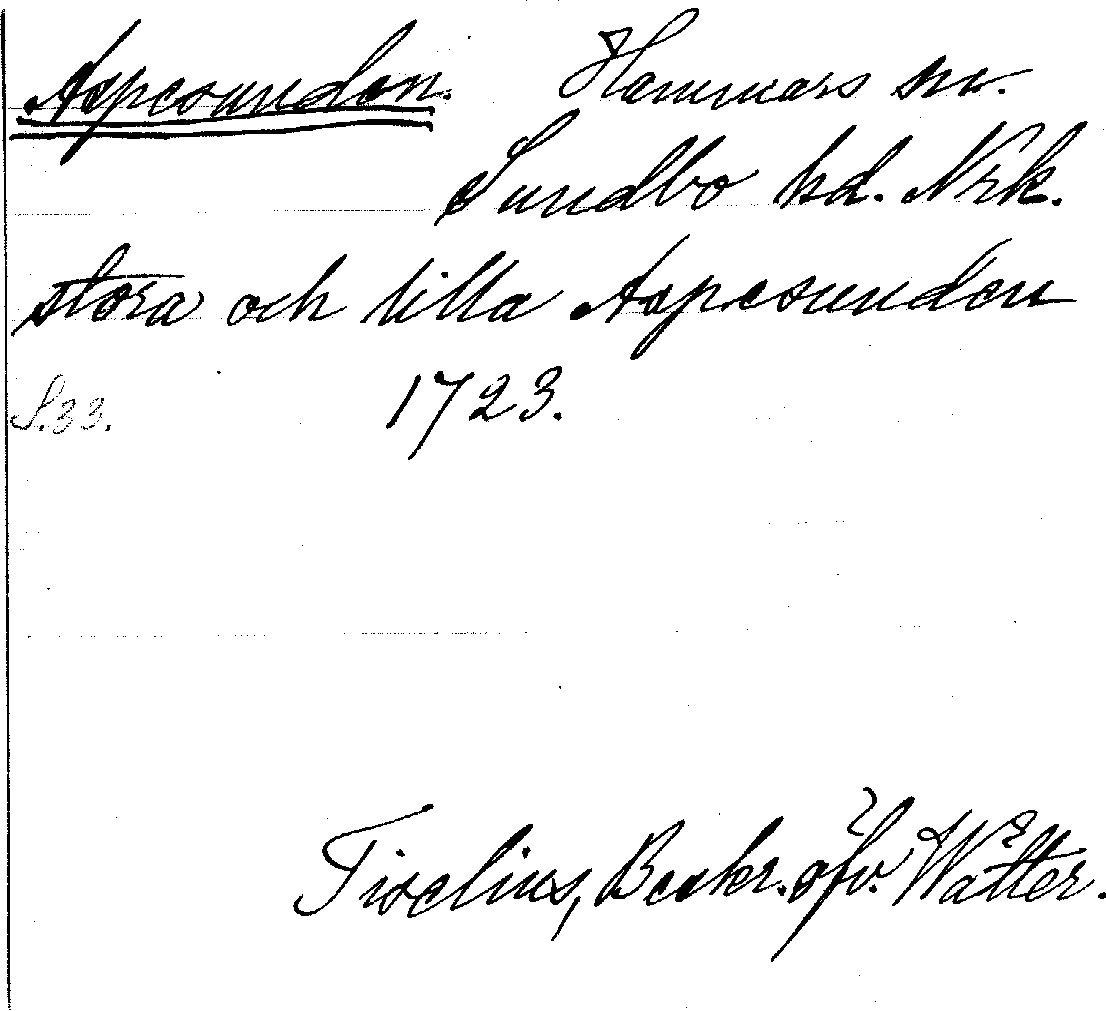 Aspesunden. Hammars sn.
Sundbo hd. Nrk.
stora och lilla Aspesunden
S.33. 1723.
Tiselius, Beskr. öfv. Wätter.